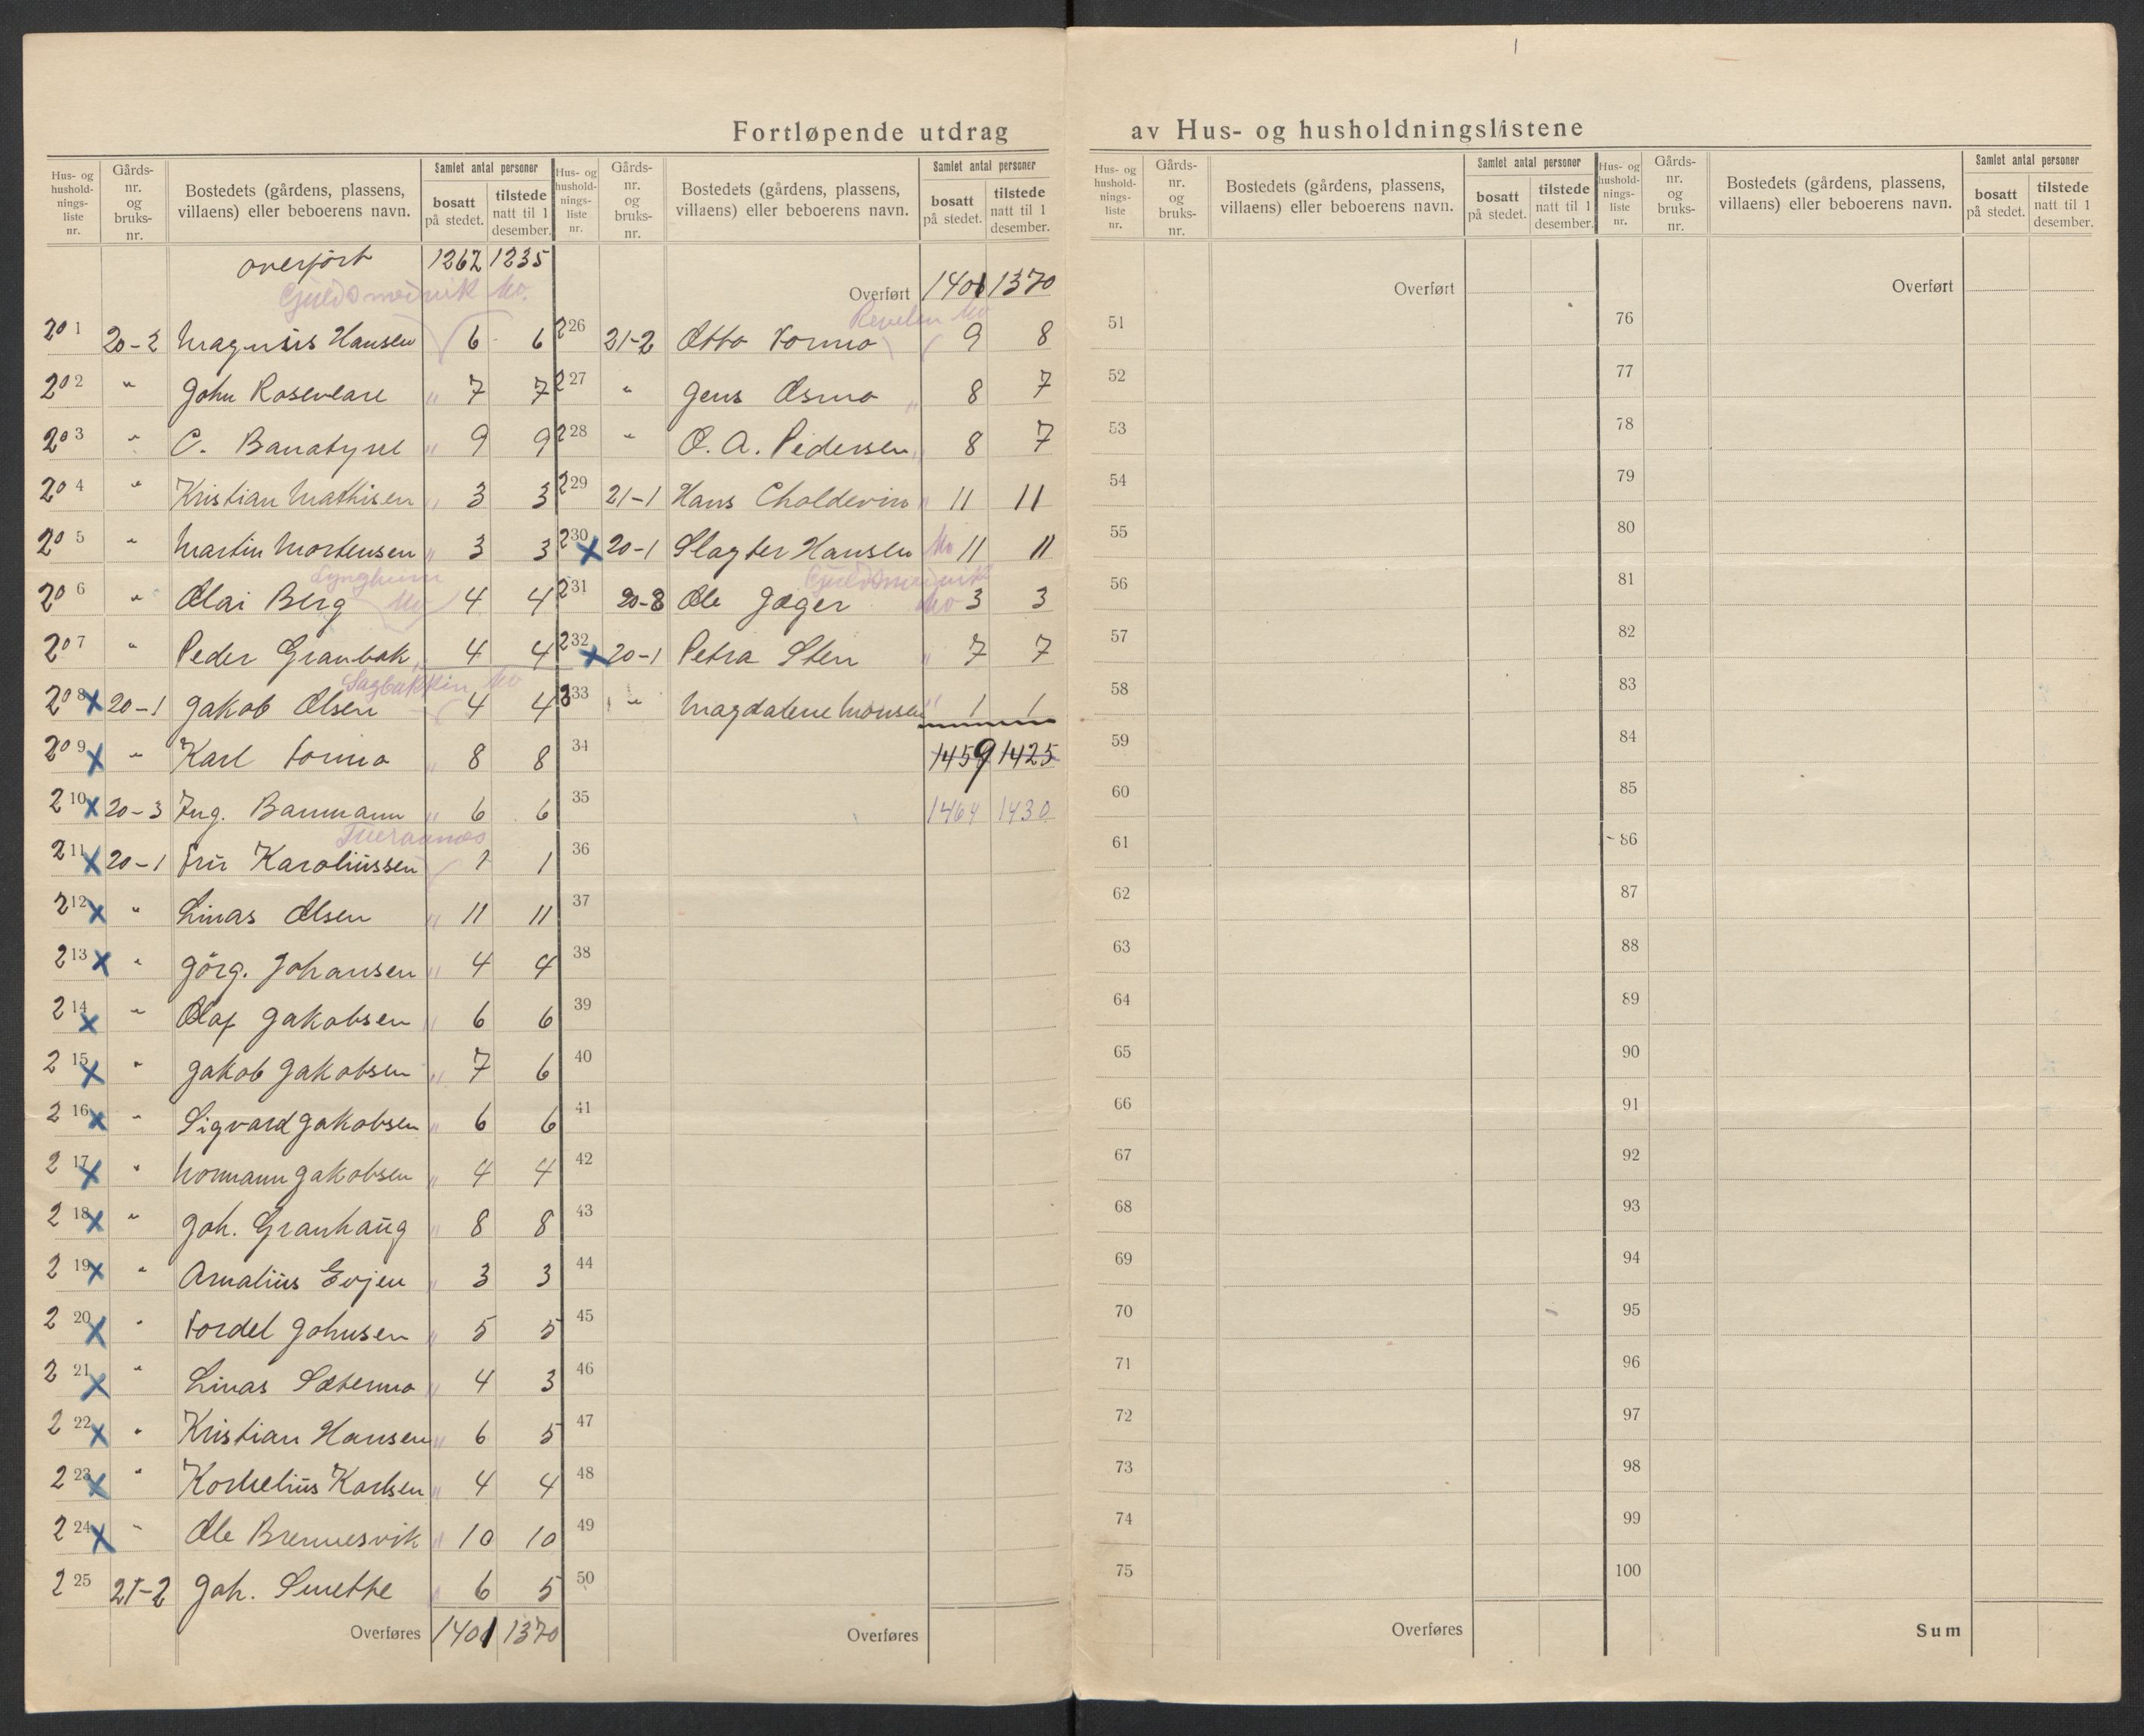 Fortløpende utdrag av Hus- og husholdningslistene
Hus- og husholdnings-liste nr. | Gårds-nr. og bruks-nr. | Bostedets (gårdens, plassens, villaens) eller beboerens navn. | Samlet antal personer | bosatt på stedet. | tilstede natt til 1 desember.
overført 1262 1235
Guldsmedvik Mo.
201 20-2 Magnus Hansen 6 6
202 " John Roseveare " 7 7
203 " C. Banatyne " 9 9
204 " Kristian Mathisen " 3 3
205 " Martin Mortensen " 3 3
Lynghaum Mo
206 " Olai Berg 4 4
207 " Peder Granbak 4 4
Sagbakken Mo
208 x 20-1 Jakob Olsen 4 4
209 x " Karl Formo " 8 8
210 x 20-3 Ing. Baumann " 6 6
Tveraanes
211 x 20-1 Fru Karoliussen 1 1
212 x " Linas Olsen " 11 11
213 x " Jörg. Johansen " 4 4
214 x " Olaf Jakobsen " 6 6
215 x " Jakob Jakobsen " 7 6
216 x " Sigvard Jakobsen 6 6
217 x " Normann Jakobsen " 4 4
218 x " Joh. Granhaug " 8 8
219 x " Arnalius Evjen " 3 3
220 x " Tordel Johnsen " 5 5
221 x " Linas Sætermo " 4 3
222 x " Kristian Hansen " 6 5
223 x " Kornelius Karlsen " 4 4
224 x " Ole Brennesvik " 10 10
225 21-2 Joh. Smette " 6 5
Overføres 1401 1370
Hus- og husholdnings-liste nr. | Gårds-nr. og bruks-nr. | Bostedets (gårdens, plassens, villaens) eller beboerens navn. | Samlet antal personer | bosatt på stedet. | tilstede natt til 1 desember.
Overført 1401 1370
Revelen Mo
226 21-2 Otto Formo 9 8
227 " Jens Osmo " 8 7
228 " O. A. Pedersen " 8 7
229 21-1 Hans Choldevin " 11 11
230 x 20-1 Slagter Hansen Mo 11 11
Guldsmedvik
231 20-8 Ole Jæger Mo 3 3
232 x 20-1 Petra Sten " 7 7
233 " Magdalene Monsen " 1 1
34 1459 1425
35 1464 1430
36
37
38
39
40
41
42
43
44
45
46
47
48
49
50
Overføres
Hus- og husholdnings-liste nr. | Gårds-nr. og bruks-nr. | Bostedets (gårdens, plassens, villaens) eller beboerens navn. | Samlet antal personer | bosatt på stedet. | tilstede natt til 1 desember.
Overført
51
52
53
54
55
56
57
58
59
60
61
62
63
64
65
66
67
68
69
70
71
72
73
74
75
Overføres
Hus- og husholdnings-liste nr. | Gårds-nr. og bruks-nr. | Bostedets (gårdens, plassens, villaens) eller beboerens navn. | Samlet antal personer | bosatt på stedet. | tilstede natt til 1 desember.
Overført
76
77
78
79
80
81
82
83
84
85
86
87
88
89
90
91
92
93
94
95
96
97
98
99
100
Sum